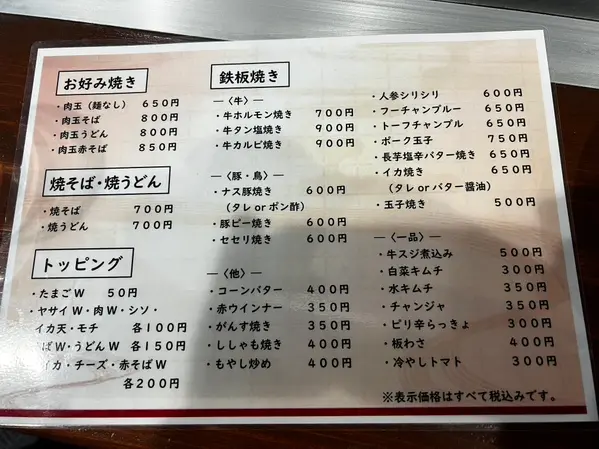 お好み焼き
・肉玉（麺なし） 650円
・肉玉そば 800円
・肉玉うどん 800円
・肉玉赤そば 850円
焼そば・焼うどん
・焼そば 700円
・焼うどん 700円
トッピング
・たまごW 50円
・ヤサイW・肉W・シソ・
イカ天・モチ 各100円
ばW・うどんW 各150円
イカ・チーズ・赤そばW
各200円
鉄板焼き
―〈牛〉―
・牛ホルモン焼き 700円
・牛タン塩焼き 900円
・牛カルビ焼き 900円
―〈豚・鳥〉―
・ナス豚焼き 600円
（タレorポン酢）
・豚ピー焼き 600円
・セセリ焼き 600円
―〈他〉―
・コーンバター 400円
・赤ウインナー 350円
・がんす焼き 350円
・ししゃも焼き 400円
・もやし炒め 400円
・人参シリシリ 600円
・フーチャンプルー 650円
・トーフチャンプル 650円
・ポーク玉子 750円
・長芋塩辛バター焼き 650円
・イカ焼き 650円
（タレorバター醤油）
・玉子焼き 500円
―〈一品〉―
・牛スジ煮込み 500円
・白菜キムチ 300円
・水キムチ 350円
・チャンジャ 350円
・ピリ辛らっきょ 300円
・板わさ 400円
・冷やしトマト 300円
※表示価格はすべて税込みです。